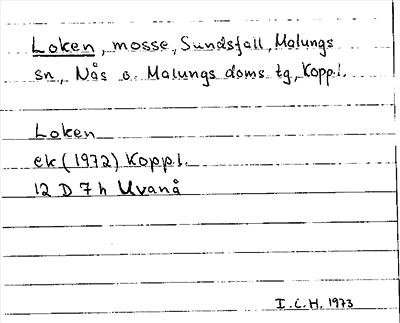 Loken, mosse, Sundsfall, Malungs
sn., Nås o. Malungs doms. tg, Koppl.
Loken
ek (1972) Koppl.
12 D 7 h Uvanå
I.C.H. 1973